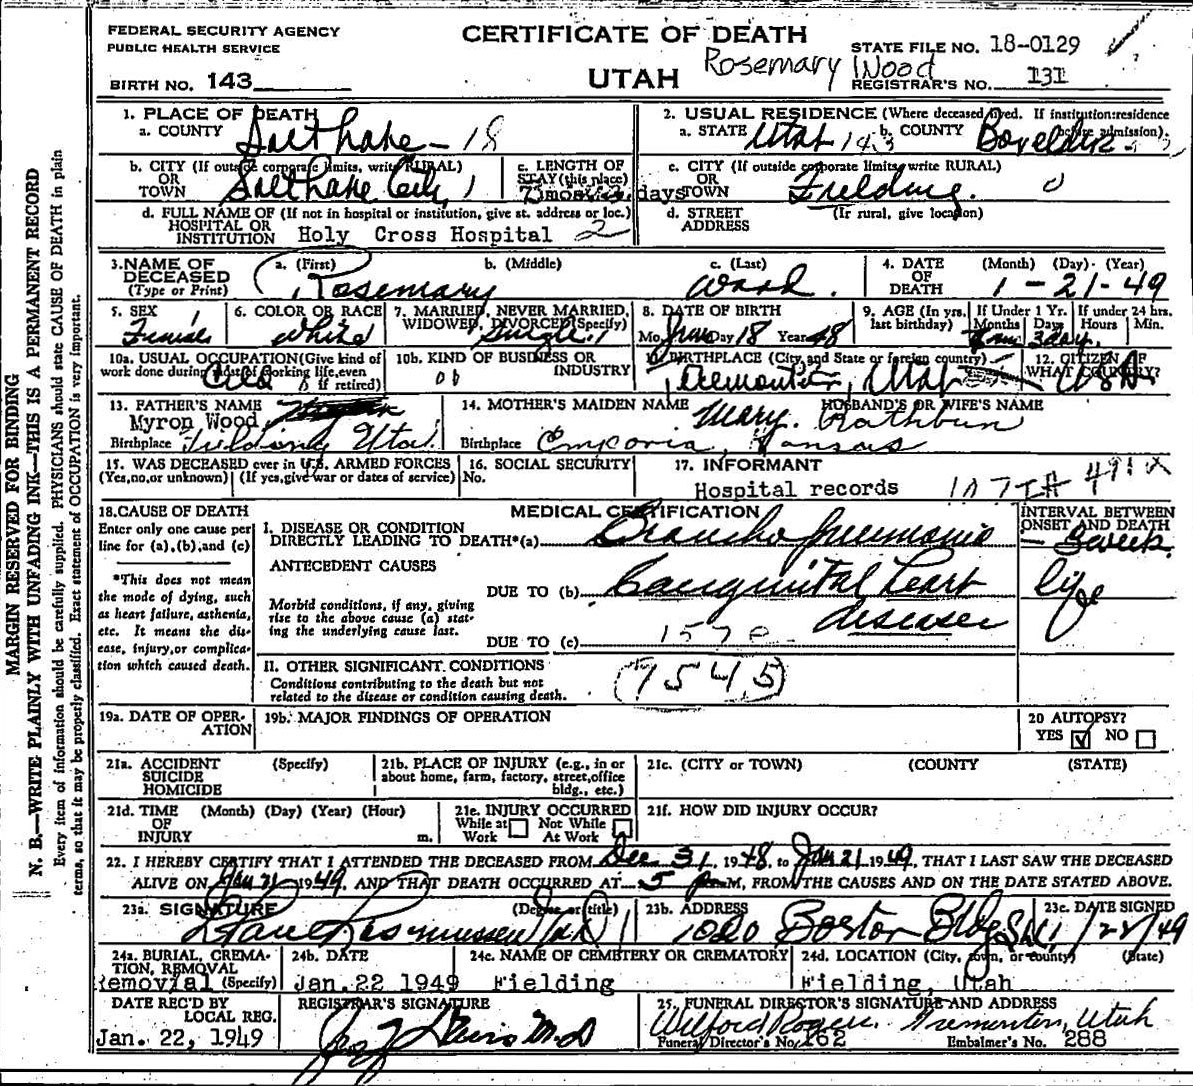 FEDERAL SECURITY AGENCY
PUBLIC HEALTH SERVICE
BIRTH NO. 143
CERTIFICATE OF DEATH
UTAH
Rosemary Wood
STATE FILE NO. 18-0129
REGISTRAR'S NO. 131
MARGIN RESERVED FOR BINDING
N. B.—WRITE PLAINLY WITH UNFADING INK—THIS IS A PERMANENT RECORD
Every item of information should be carefully supplied. PHYSICIANS should state CAUSE OF DEATH in plain
terms, so that it may be properly classified. Exact statement of OCCUPATION is very important.
1. PLACE OF DEATH
a. COUNTY Salt Lake - 18
2. USUAL RESIDENCE (Where deceased lived. If institution:residence
before admission).
a. STATE Utah 143 b. COUNTY Boxelder
b. CITY (If outside corporate limits, write RURAL)
OR
TOWN Salt Lake City 1
c. LENGTH OF
STAY (this place)
days
c. CITY (If outside corporate limits, write RURAL)
OR
TOWN Fielding. 0
d. FULL NAME OF (If not in hospital or institution, give st. address or loc.)
HOSPITAL OR
INSTITUTION Holy Cross Hospital 2
d. STREET (If rural, give location)
ADDRESS
3. NAME OF
DECEASED
(Type or Print)
a. (First) Rosemary
b. (Middle)
c. (Last) Wood.
4. DATE
OF
DEATH
(Month) (Day) (Year)
1-21-49
5. SEX 1
Female
6. COLOR OR RACE
White
7. MARRIED, NEVER MARRIED,
WIDOWED, DIVORCED (Specify)
Single 1
8. DATE OF BIRTH
Mo. June Day 18 Year 48
9. AGE (In yrs.
last birthday)
If Under 1 Yr.
Months Days
3 day.
If under 24 hrs.
Hours Min.
10a. USUAL OCCUPATION (Give kind of
work done during most of working life, even
if retired)
Child
10b. KIND OF BUSINESS OR
INDUSTRY
11. BIRTHPLACE (City and State or foreign country)
Tremonton, Utah
12. CITIZEN OF
WHAT COUNTRY?
USA
13. FATHER'S NAME
Myron Wood
Birthplace Fielding Utah
14. MOTHER'S MAIDEN NAME HUSBAND'S OR WIFE'S NAME
Mary Rathbun
Birthplace Emporia, Kansas
15. WAS DECEASED ever in U.S. ARMED FORCES
(Yes, no, or unknown) (If yes, give war or dates of service)
16. SOCIAL SECURITY
No.
17. INFORMANT
Hospital records
18. CAUSE OF DEATH
Enter only one cause per
line for (a), (b), and (c)
*This does not mean
the mode of dying, such
as heart failure, asthenia,
etc. It means the dis-
ease, injury, or complica-
tion which caused death.
MEDICAL CERTIFICATION
I. DISEASE OR CONDITION
DIRECTLY LEADING TO DEATH*(a) Broncho pneumonia
ANTECEDENT CAUSES
Morbid conditions, if any, giving
rise to the above cause (a) stat-
ing the underlying cause last.
DUE TO (b) Congenital heart
disease
DUE TO (c)
INTERVAL BETWEEN
ONSET AND DEATH
3 week.
life
II. OTHER SIGNIFICANT CONDITIONS
Conditions contributing to the death but not
related to the disease or condition causing death.
7545
19a. DATE OF OPER-
ATION
19b. MAJOR FINDINGS OF OPERATION
20 AUTOPSY?
YES ☑ NO ☐
21a. ACCIDENT (Specify)
SUICIDE
HOMICIDE
21b. PLACE OF INJURY (e.g., in or
about home, farm, factory, street, office
bldg., etc.)
21c. (CITY or TOWN) (COUNTY) (STATE)
21d. TIME (Month) (Day) (Year) (Hour)
OF
INJURY m.
21e. INJURY OCCURRED
While at ☐ Not While ☐
Work At Work
21f. HOW DID INJURY OCCUR?
22. I HEREBY CERTIFY THAT I ATTENDED THE DECEASED FROM Dec 31, 1948, to Jan 21 1949, THAT I LAST SAW THE DECEASED
ALIVE ON Jan 21 1949, AND THAT DEATH OCCURRED AT 5 p M, FROM THE CAUSES AND ON THE DATE STATED ABOVE.
23a. SIGNATURE (Degree or title)
Rasmussen MD
23b. ADDRESS
1020 Boston Bldg SLC
23c. DATE SIGNED
1/22/49
24a. BURIAL, CREMA-
TION, REMOVAL
Removal (Specify)
24b. DATE
Jan.22 1949
24c. NAME OF CEMETERY OR CREMATORY
Fielding
24d. LOCATION (City, town, or county) (State)
Fielding, Utah
DATE REC'D BY
LOCAL REG.
Jan. 22, 1949
REGISTRAR'S SIGNATURE
M.D
25. FUNERAL DIRECTOR'S SIGNATURE AND ADDRESS
Wilford Rogers. Tremonton, Utah
Funeral Director's No. 262 Embalmer's No. 288